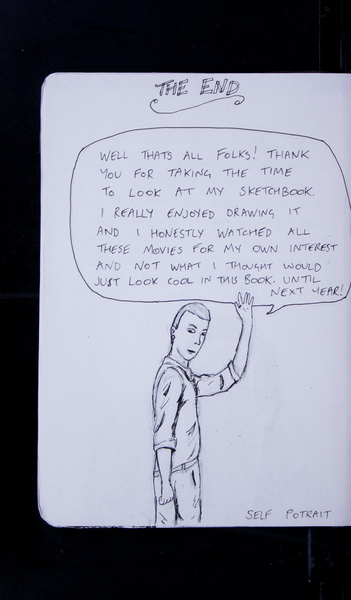 THE END
WELL THATS ALL FOLKS! THANK
YOU FOR TAKING THE TIME
TO LOOK AT MY SKETCHBOOK.
I REALLY ENJOYED DRAWING IT
AND I HONESTLY WATCHED ALL
THESE MOVIES FOR MY OWN INTEREST
AND NOT WHAT I THOUGHT WOULD
JUST LOOK COOL IN THIS BOOK. UNTIL
NEXT YEAR!
SELF POTRAIT